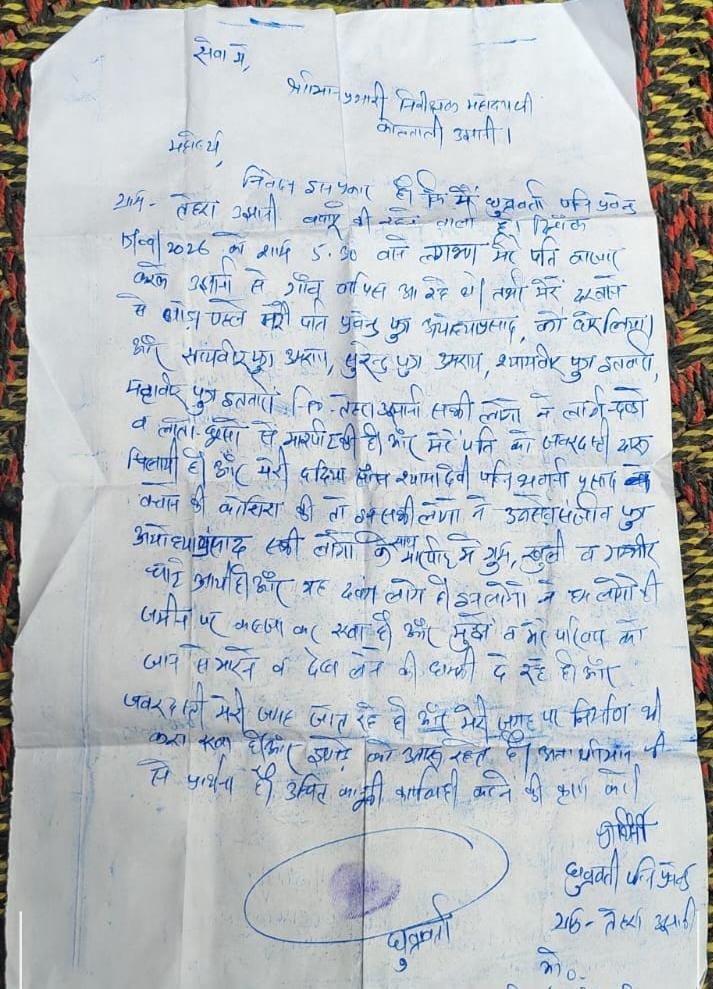 सेवा में,
श्रीमान प्रभारी निरीक्षक महोदय जी
कोतवाली उझानी।
महोदय,
निवेदन इस प्रकार है कि मैं ध्रुववती पत्नि प्रवेन्द्र
ग्राम- तेहरा उझानी की रहने वाली हूँ। दिनांक
2026 को शाम 5.30 बजे लगभग मेरे पति बाजार
करके उझानी से गाँव वापिस आ रहे थे। तभी मेरे दरवाजे
से थोड़ा पहले मेरे पति प्रवेन्द्र पुत्र अयोध्याप्रसाद, को घेर लिया।
और सत्यवीर पुत्र पुत्र श्यामवीर पुत्र इतवारी,
महावीर पुत्र इतवारी उझानी सभी लोगो ने लाठी-डण्डो
व लात-घूसों से मारपीट की है और मेरे पति को जबरदस्ती दारू
पिलायी है। और मेरी ददिया सास श्यामादेवी पत्नि भवानी प्रसाद
बचाने की कोशिश की तो इन सभी लोगो ने पुत्र
अयोध्याप्रसाद सभी लोगो के साथ मारपीट में गुम, खुली व गम्भीर
चोटे आयी है और यह दबंग लोग है। इन लोगो ने हम लोगो की
जमीन पर कब्जा कर रखा है और मुझे व मेरे परिवार को
जान से मारने व देख लेने की धमकी दे रहे है और
जबरदस्ती मेरी जगह जोत रहे है और मेरी जगह पर निर्माण भी
करा रखा है और झगड़े को रहते है। अतः श्रीमान जी
से प्रार्थना है। उचित कानूनी कार्यवाही करने की कृपा करें।
प्रार्थिनी
ध्रुववती पत्नि प्रवेन्द्र
ग्राम- तेहरा उझानी
ध्रुववती
मो०